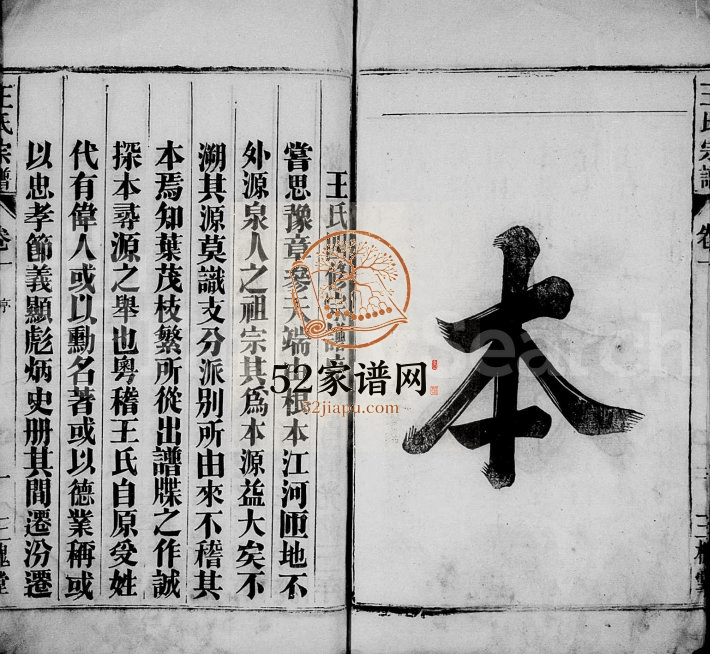 本
王氏四修宗譜序
嘗思豫章參天端由根本江河匝地不
外源泉人之祖宗其爲本源益大矣不
溯其源莫識支分派別所由來不稽其
本焉知葉茂枝繁所從出譜牒之作誠
探本尋源之舉也粵稽王氏自原受姓
代有偉人或以勳名著或以德業稱或
以忠孝節義顯彪炳史册其間遷汾遷
王氏宗譜 卷一 序 一 三槐堂
王氏宗譜 卷一 三槐堂
52家谱网
52jiapu.com